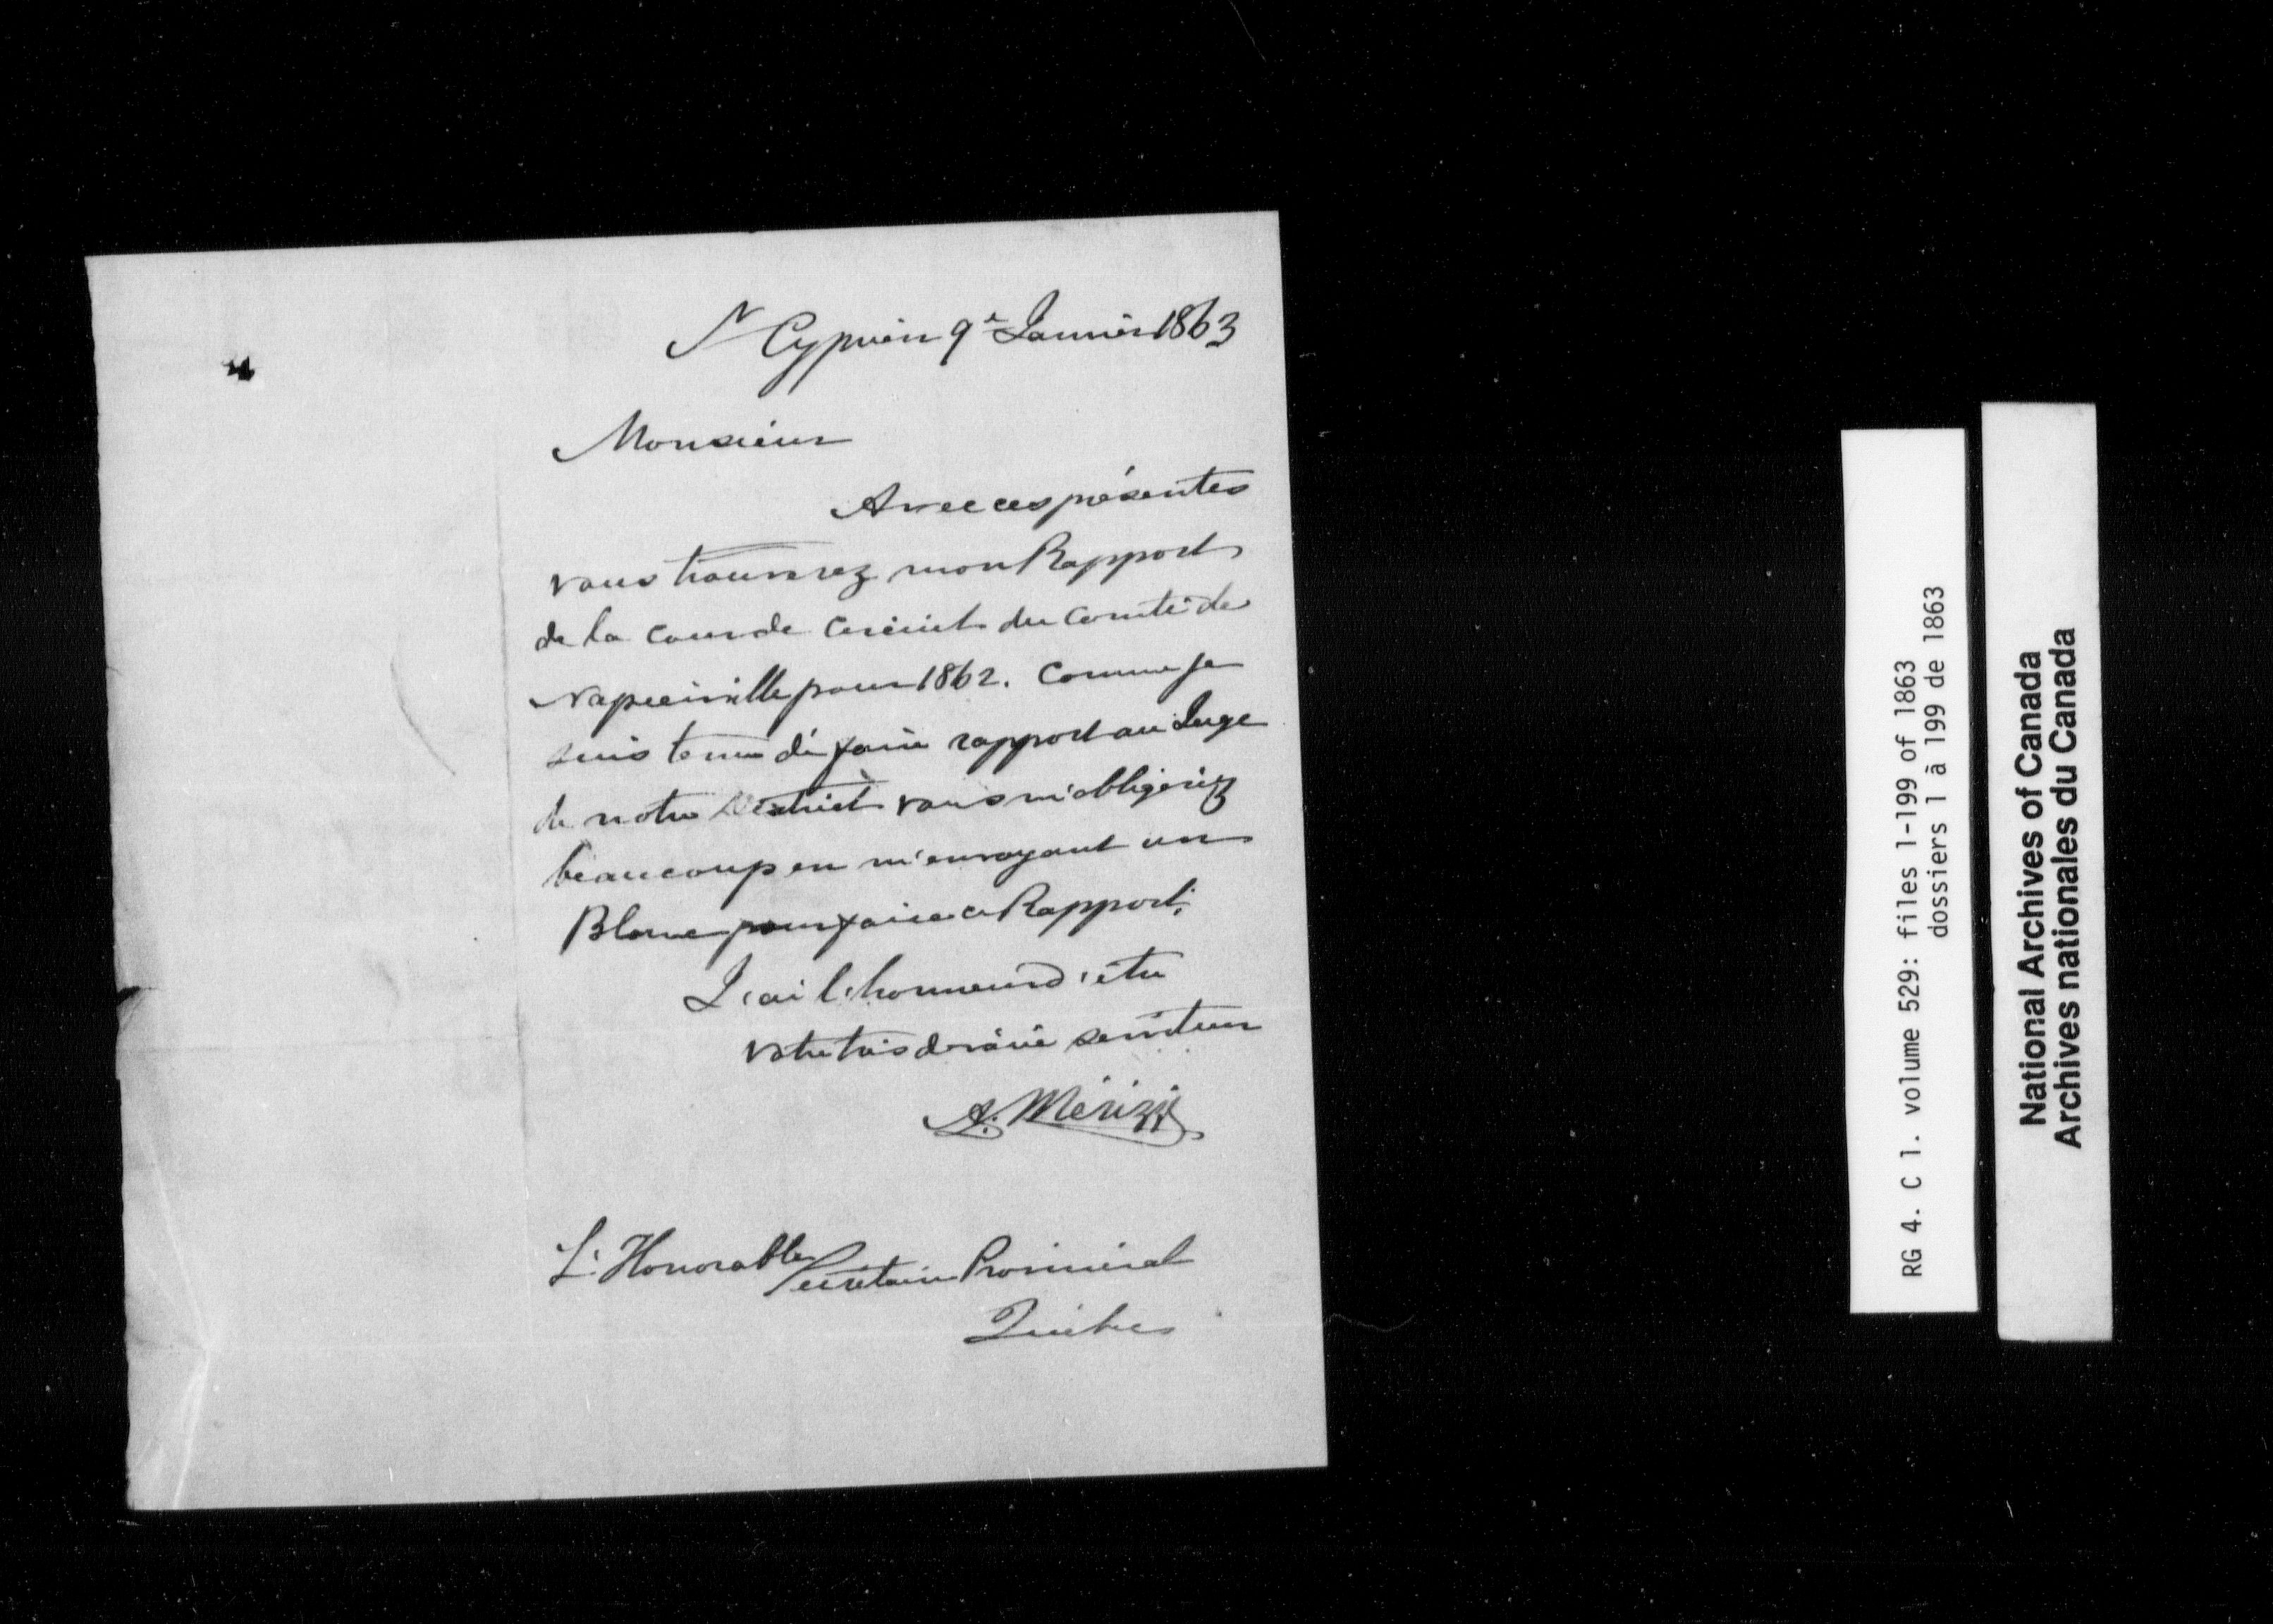 St Cyprien 9e Janvier 1863
Monsieur
Avec ces présentes
vous trouverez mon Rapport
de la Cour de Circuit du Comté de
Napierville pour 1862. Comme je
suis tenu de faire rapport au Juge
de notre District vous m'obligeriez
beaucoup en m'envoyant un
Blanc pour faire ce Rapport.
J'ai l'honneur d'être
votre très dévoué serviteur
A. Mérizzi
L'Honorable Secrétaire Provincial
Québec
RG 4. C 1. volume 529: files 1-199 of 1863
dossiers 1 à 199 de 1863
National Archives of Canada
Archives nationales du Canada